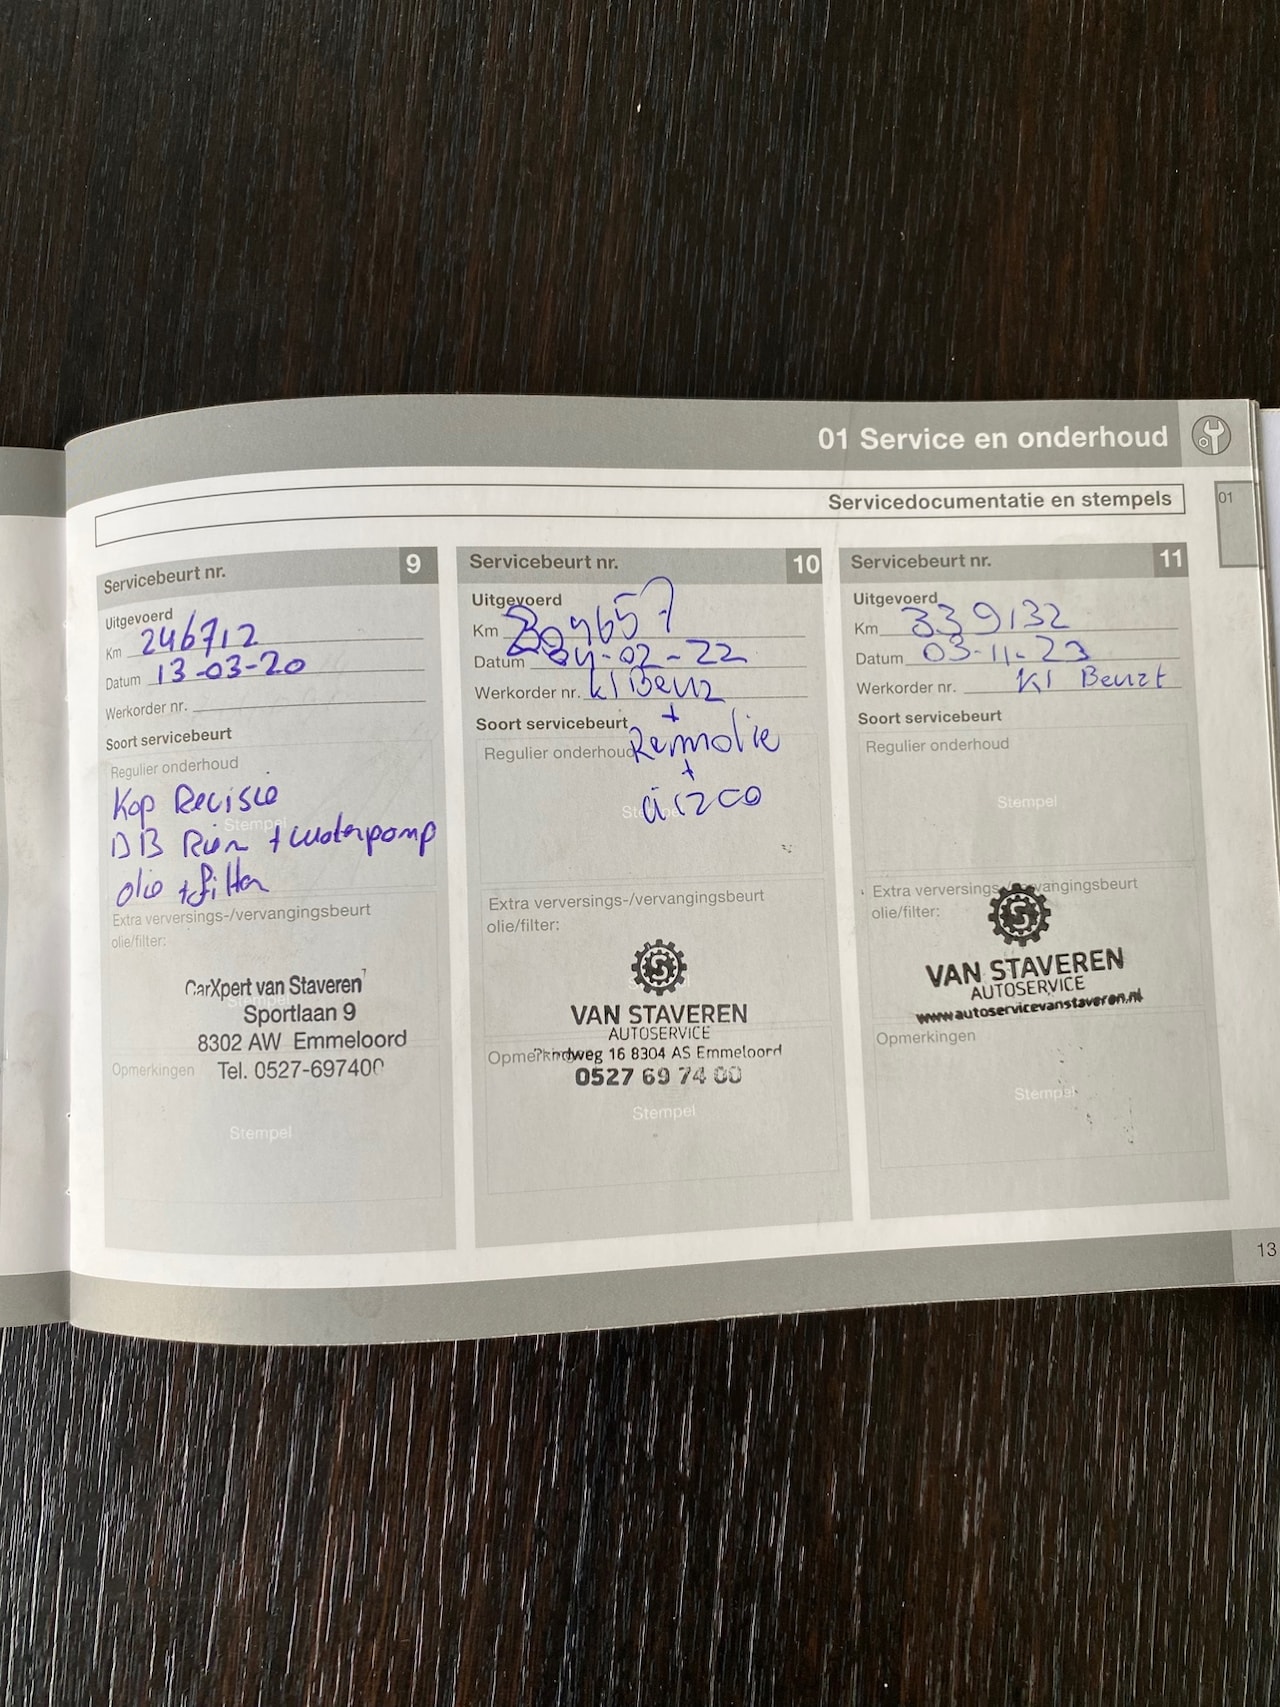 01 Service en onderhoud
01
Servicedocumentatie en stempels
Servicebeurt nr. 9
Uitgevoerd
Km 246712
Datum 13-03-20
Werkorder nr.
Soort servicebeurt
Regulier onderhoud
Kop Recisie
DB Riem + waterpomp
olie + filter
Stempel
Extra verversings-/vervangingsbeurt
olie/filter:
CarXpert van Staveren
Stempel
Sportlaan 9
8302 AW Emmeloord
Opmerkingen
Tel. 0527-697400
Stempel
Servicebeurt nr. 10
Uitgevoerd
Km 309657
Datum 04-02-22
Werkorder nr. kl Beurt
+
Soort servicebeurt
Regulier onderhoud
Remolie
+
airco
Extra verversings-/vervangingsbeurt
olie/filter:
VAN STAVEREN
AUTOSERVICE
Opmerkingen
16 8304 AS Emmeloord
0527 69 74 00
Stempel
Servicebeurt nr. 11
Uitgevoerd
Km 339132
Datum 03-11-23
Werkorder nr. Kl Beurt
Soort servicebeurt
Regulier onderhoud
Stempel
Extra verversings-/vervangingsbeurt
olie/filter:
VAN STAVEREN
AUTOSERVICE
www.autoservicevanstaveren.nl
Opmerkingen
Stempel
13